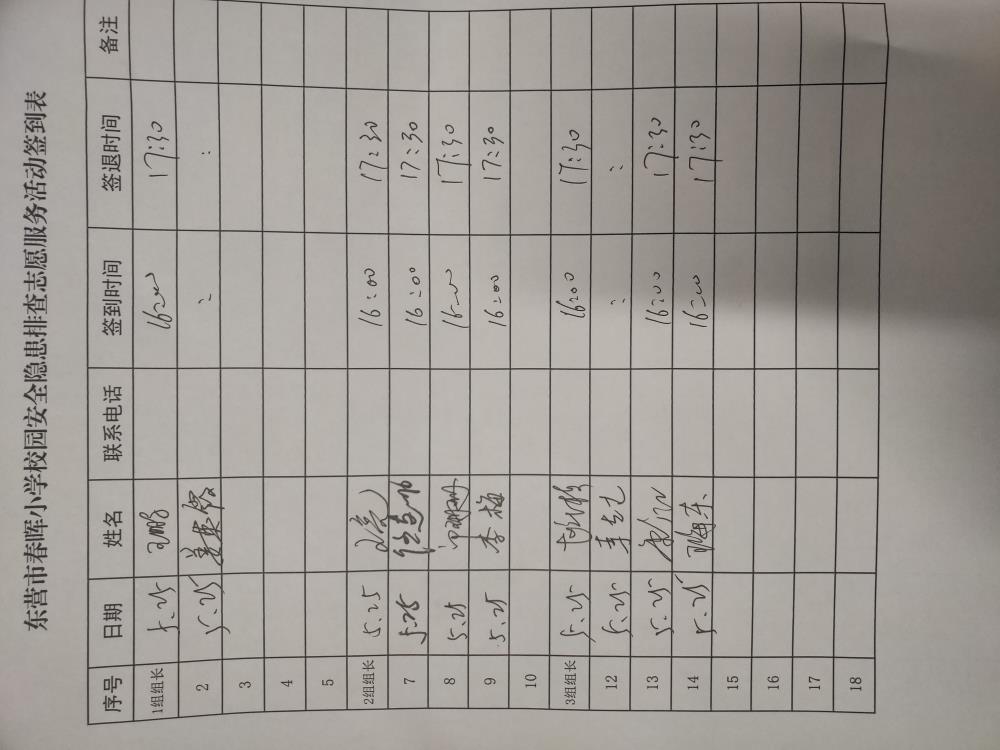 东营市春晖小学校园安全隐患排查志愿服务活动签到表
序号 日期 姓名 联系电话 签到时间 签退时间 备注
1组组长 5.25 16:00 17:30
2 5.25 : :
3
4
5
2组组长 5.25 16:00 17:30
7 5.25 16:00 17:30
8 5.25 16:00 17:30
9 5.25 李梅 16:00 17:30
10
3组组长 5.25 16:00 17:30
12 5.25 : :
13 5.25 16:00 17:30
14 5.25 16:00 17:30
15
16
17
18